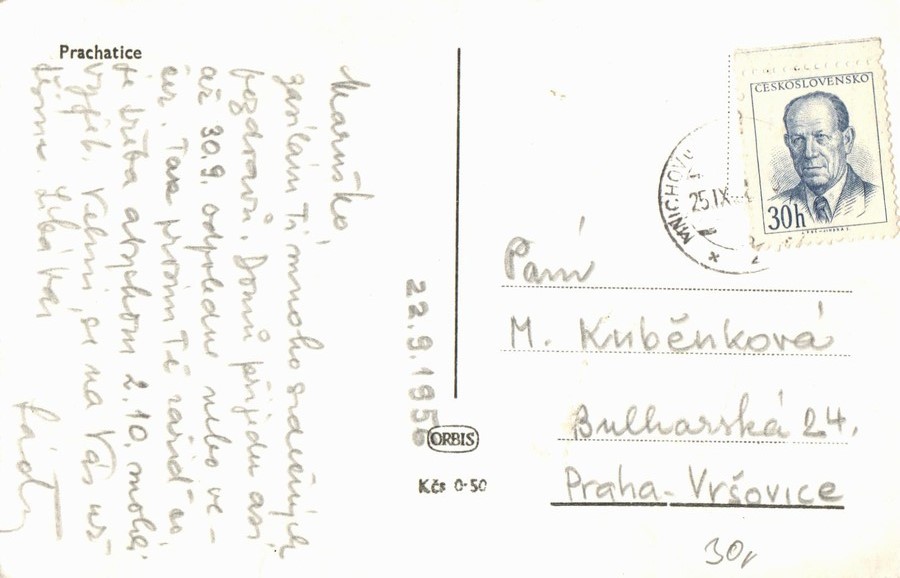 Prachatice
Maruško,
zasílám Ti mnoho srdečných
pozdravů. Domů přijedu asi
až 30.9. odpoledne nebo ve-
čer. Tak prosím Tě zařiď co
je třeba abychom 2.10. mohli
vyjet. Velmi se na Vás už
těším. Líbá Vás
Láďa
22.9.195
ORBIS
Kčs 0·50
ČESKOSLOVENSKO
30h
MNICHOV
25 IX
Paní
M. Kuběnková
Bulharská 24,
Praha-Vršovice
30,